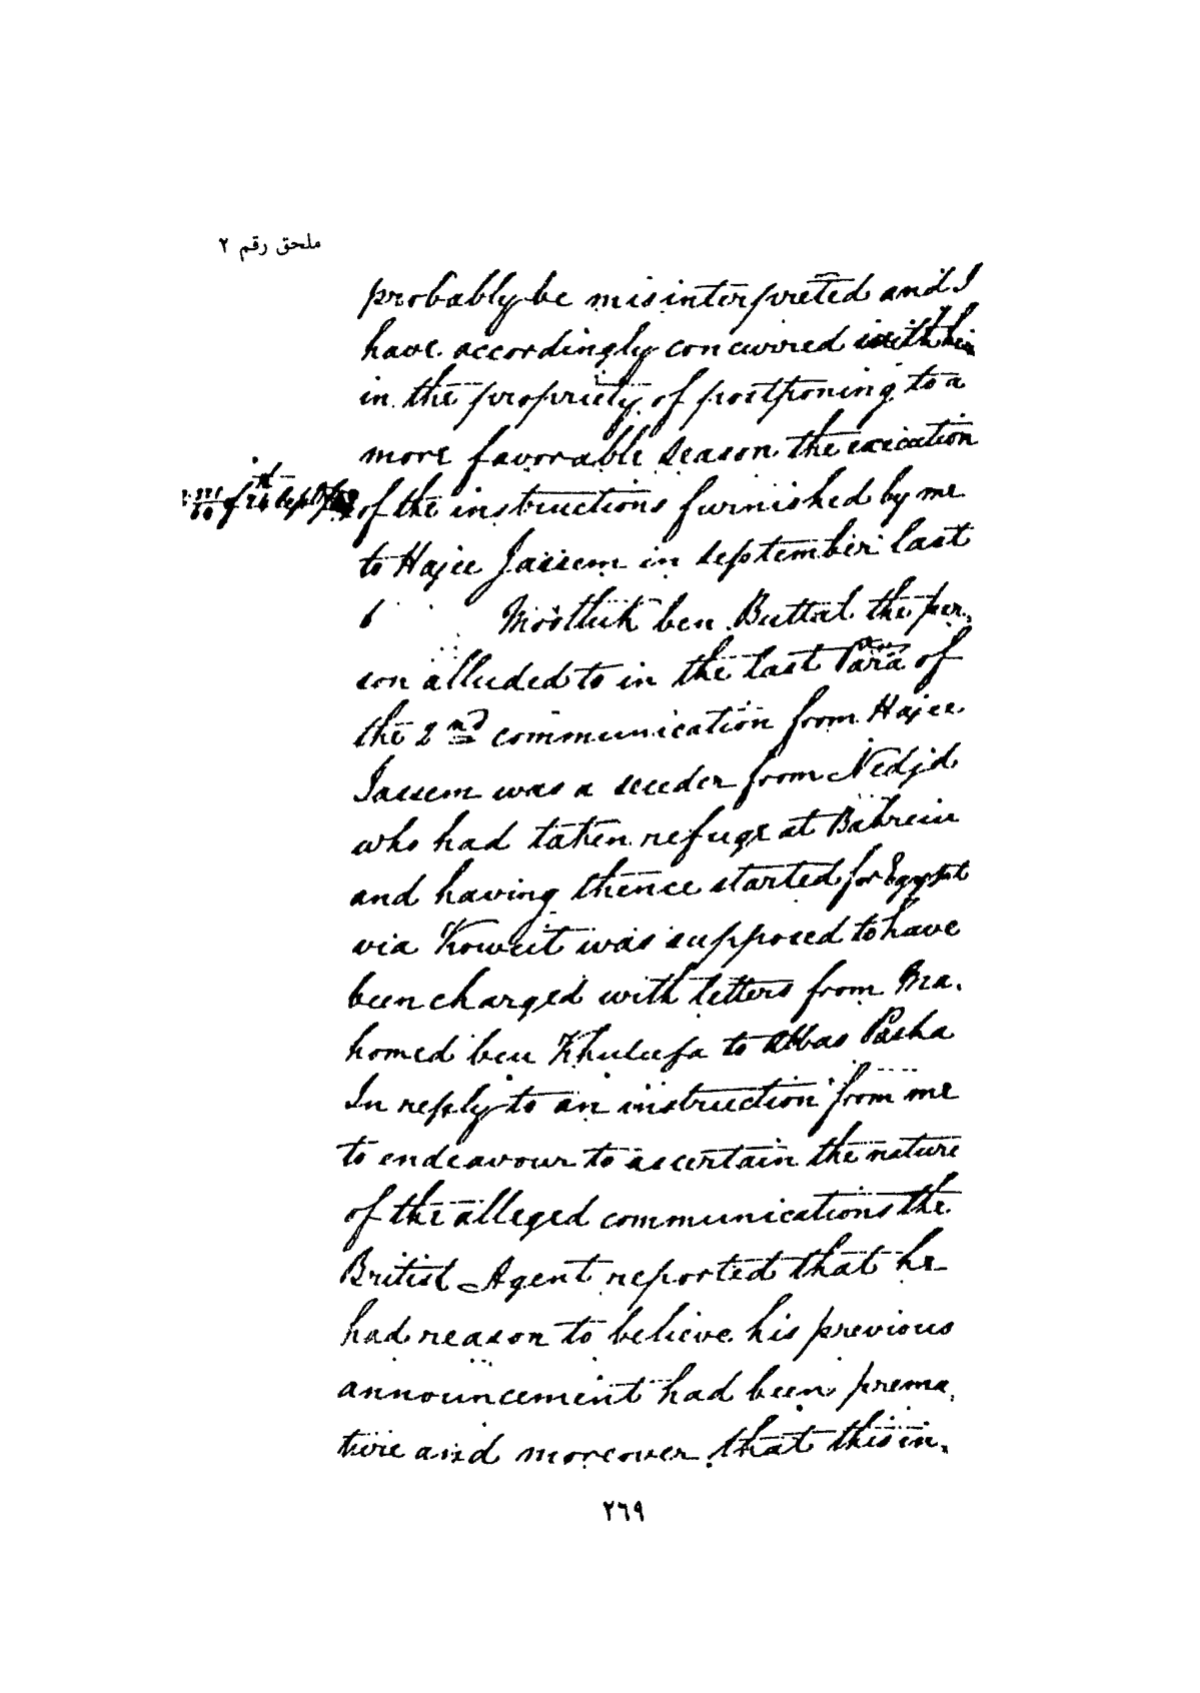 ملحق رقم ٢
probably be misinterpreted and I
have accordingly concurred with him
in the propriety of postponing to a
more favorable season the execution
of 24 Sept
of the instructions furnished by me
to Hajee Jassem in September last
6 Mostluk ben Buttal the per-
son alluded to in the last Para of
the 2nd communication from Hajee
Jassem was a seceder from Nedjd
who had taken refuge at Bahrein
and having thence started for Egypt
via Koweit was supposed to have
been charged with letters from Ma-
homed ben Khuleefa to Abbas Pasha
In reply to an instruction from me
to endeavour to ascertain the nature
of the alleged communications the
British Agent reported that he
had reason to believe his previous
announcement had been prema-
ture and moreover that this in-
٢٦٩